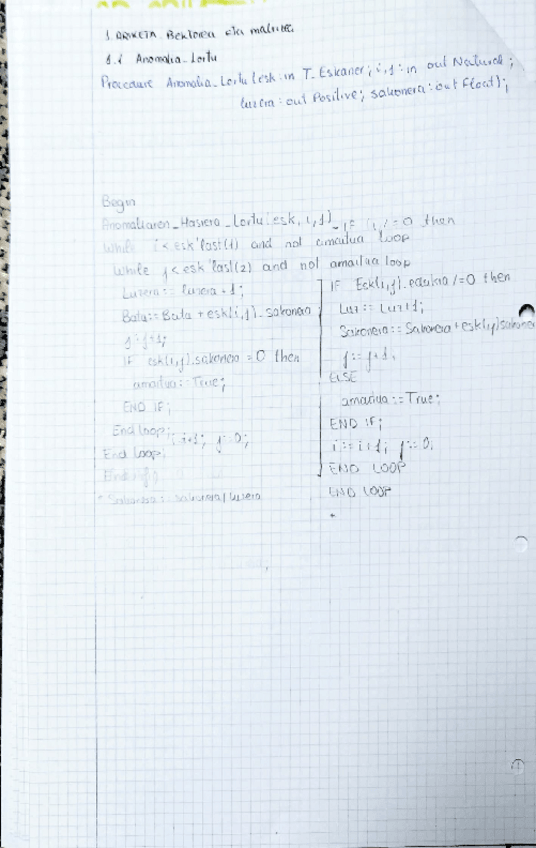 1. ARIKETA. Bektorea eta matrizea
1.1 Anomalia_Lortu
Procedure Anomalia_Lortu (esk: in T_Eskaner; i, j: in out Natural;
luzera: out Positive; sakonera: out Float);
Begin
Anomaliaren_Hasiera_Lortu(esk, i, j) IF i /= 0 then
While i < esk'last(1) and not amaitua loop
While j < esk'last(2) and not amaitua loop
Luzera := luzera + 1;
Batu := Batu + esk(i,j).sakonera
j := j+1;
IF esk(i,j).sakonera = 0 then
amaitua := True;
END IF;
End loop; i+1; j:=0;
End loop;
End if;
* Sakonera := sakonera / luzera
IF Esk(i,j). /=0 then
Luz := Luz+1;
Sakonera := Sakonera + esk(i,j)sakonera
j := j+1;
ELSE
amaitua := True;
END IF;
i := i+1; j := 0;
END LOOP
END LOOP
*